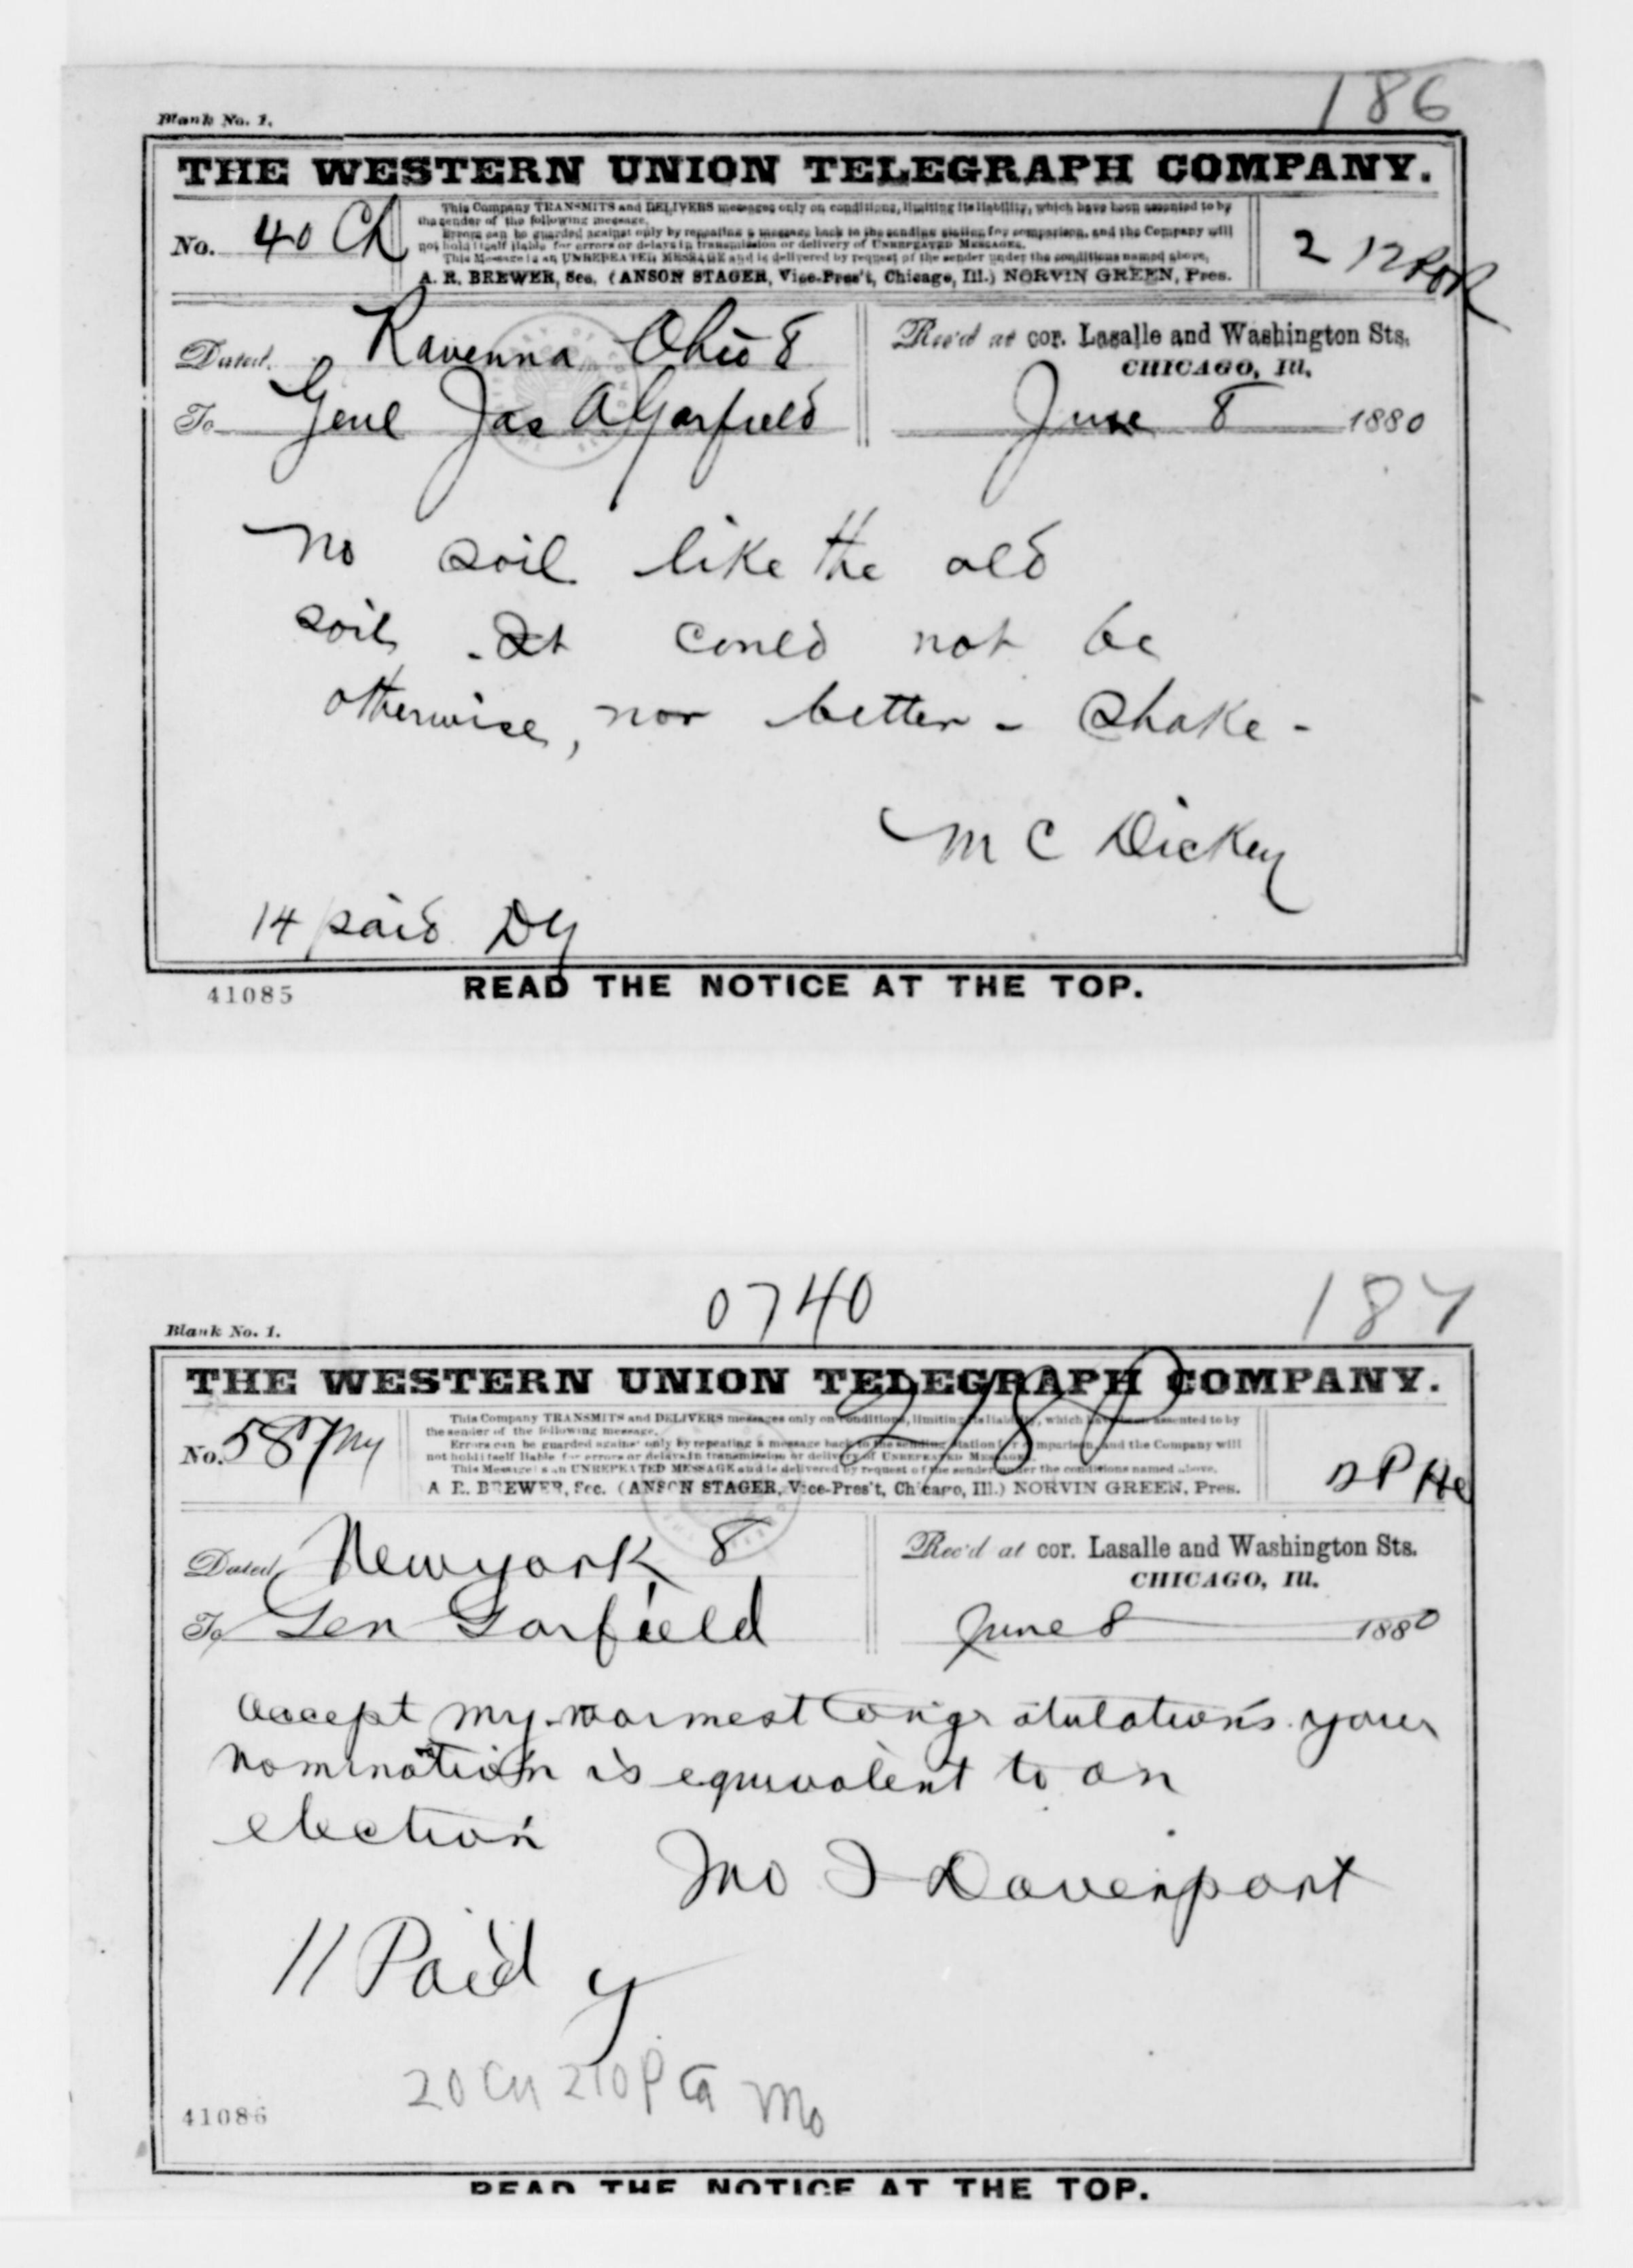 186
Blank No. 1.
THE WESTERN UNION TELEGRAPH COMPANY.
This Company TRANSMITS and DELIVERS messages only on conditions, limiting its liability, which have been assented to by
the sender of the following message.
Errors can be guarded against only by repeating a message back to the sending station for comparison, and the Company will
not hold itself liable for errors or delays in transmission or delivery of UNREPEATED MESSAGES.
This Message is an UNREPEATED MESSAGE and is delivered by request of the sender under the conditions named above.
A. R. BREWER, Sec. (ANSON STAGER, Vice-Pres't, Chicago, Ill.) NORVIN GREEN, Pres.
No. 40 Ch
2 12
Dated Ravenna Ohio 8
Rec'd at cor. Lasalle and Washington Sts.
CHICAGO, Ill.
To Genl Jas A Garfield
June 8 1880
No soil like the old
soil. It could not be
otherwise, nor better - Shake -
M C Dickey
14 paid DY
41085
READ THE NOTICE AT THE TOP.
0740
187
Blank No. 1.
THE WESTERN UNION TELEGRAPH COMPANY.
218P
This Company TRANSMITS and DELIVERS messages only on conditions, limiting its liability, which have been assented to by
the sender of the following message.
Errors can be guarded against only by repeating a message back to the sending station for comparison, and the Company will
not hold itself liable for errors or delays in transmission or delivery of UNREPEATED MESSAGES.
This Message is an UNREPEATED MESSAGE and is delivered by request of the sender under the conditions named above.
A. R. BREWER, Sec. (ANSON STAGER, Vice-Pres't, Chicago, Ill.) NORVIN GREEN, Pres.
No. 587
Dated Newyork 8
Rec'd at cor. Lasalle and Washington Sts.
CHICAGO, Ill.
To Gen Garfield
June 8 1880
accept my warmest Congratulations your
nomination is equivalent to an
election
Jno I Davenport
11 Paid y
41086
READ THE NOTICE AT THE TOP.